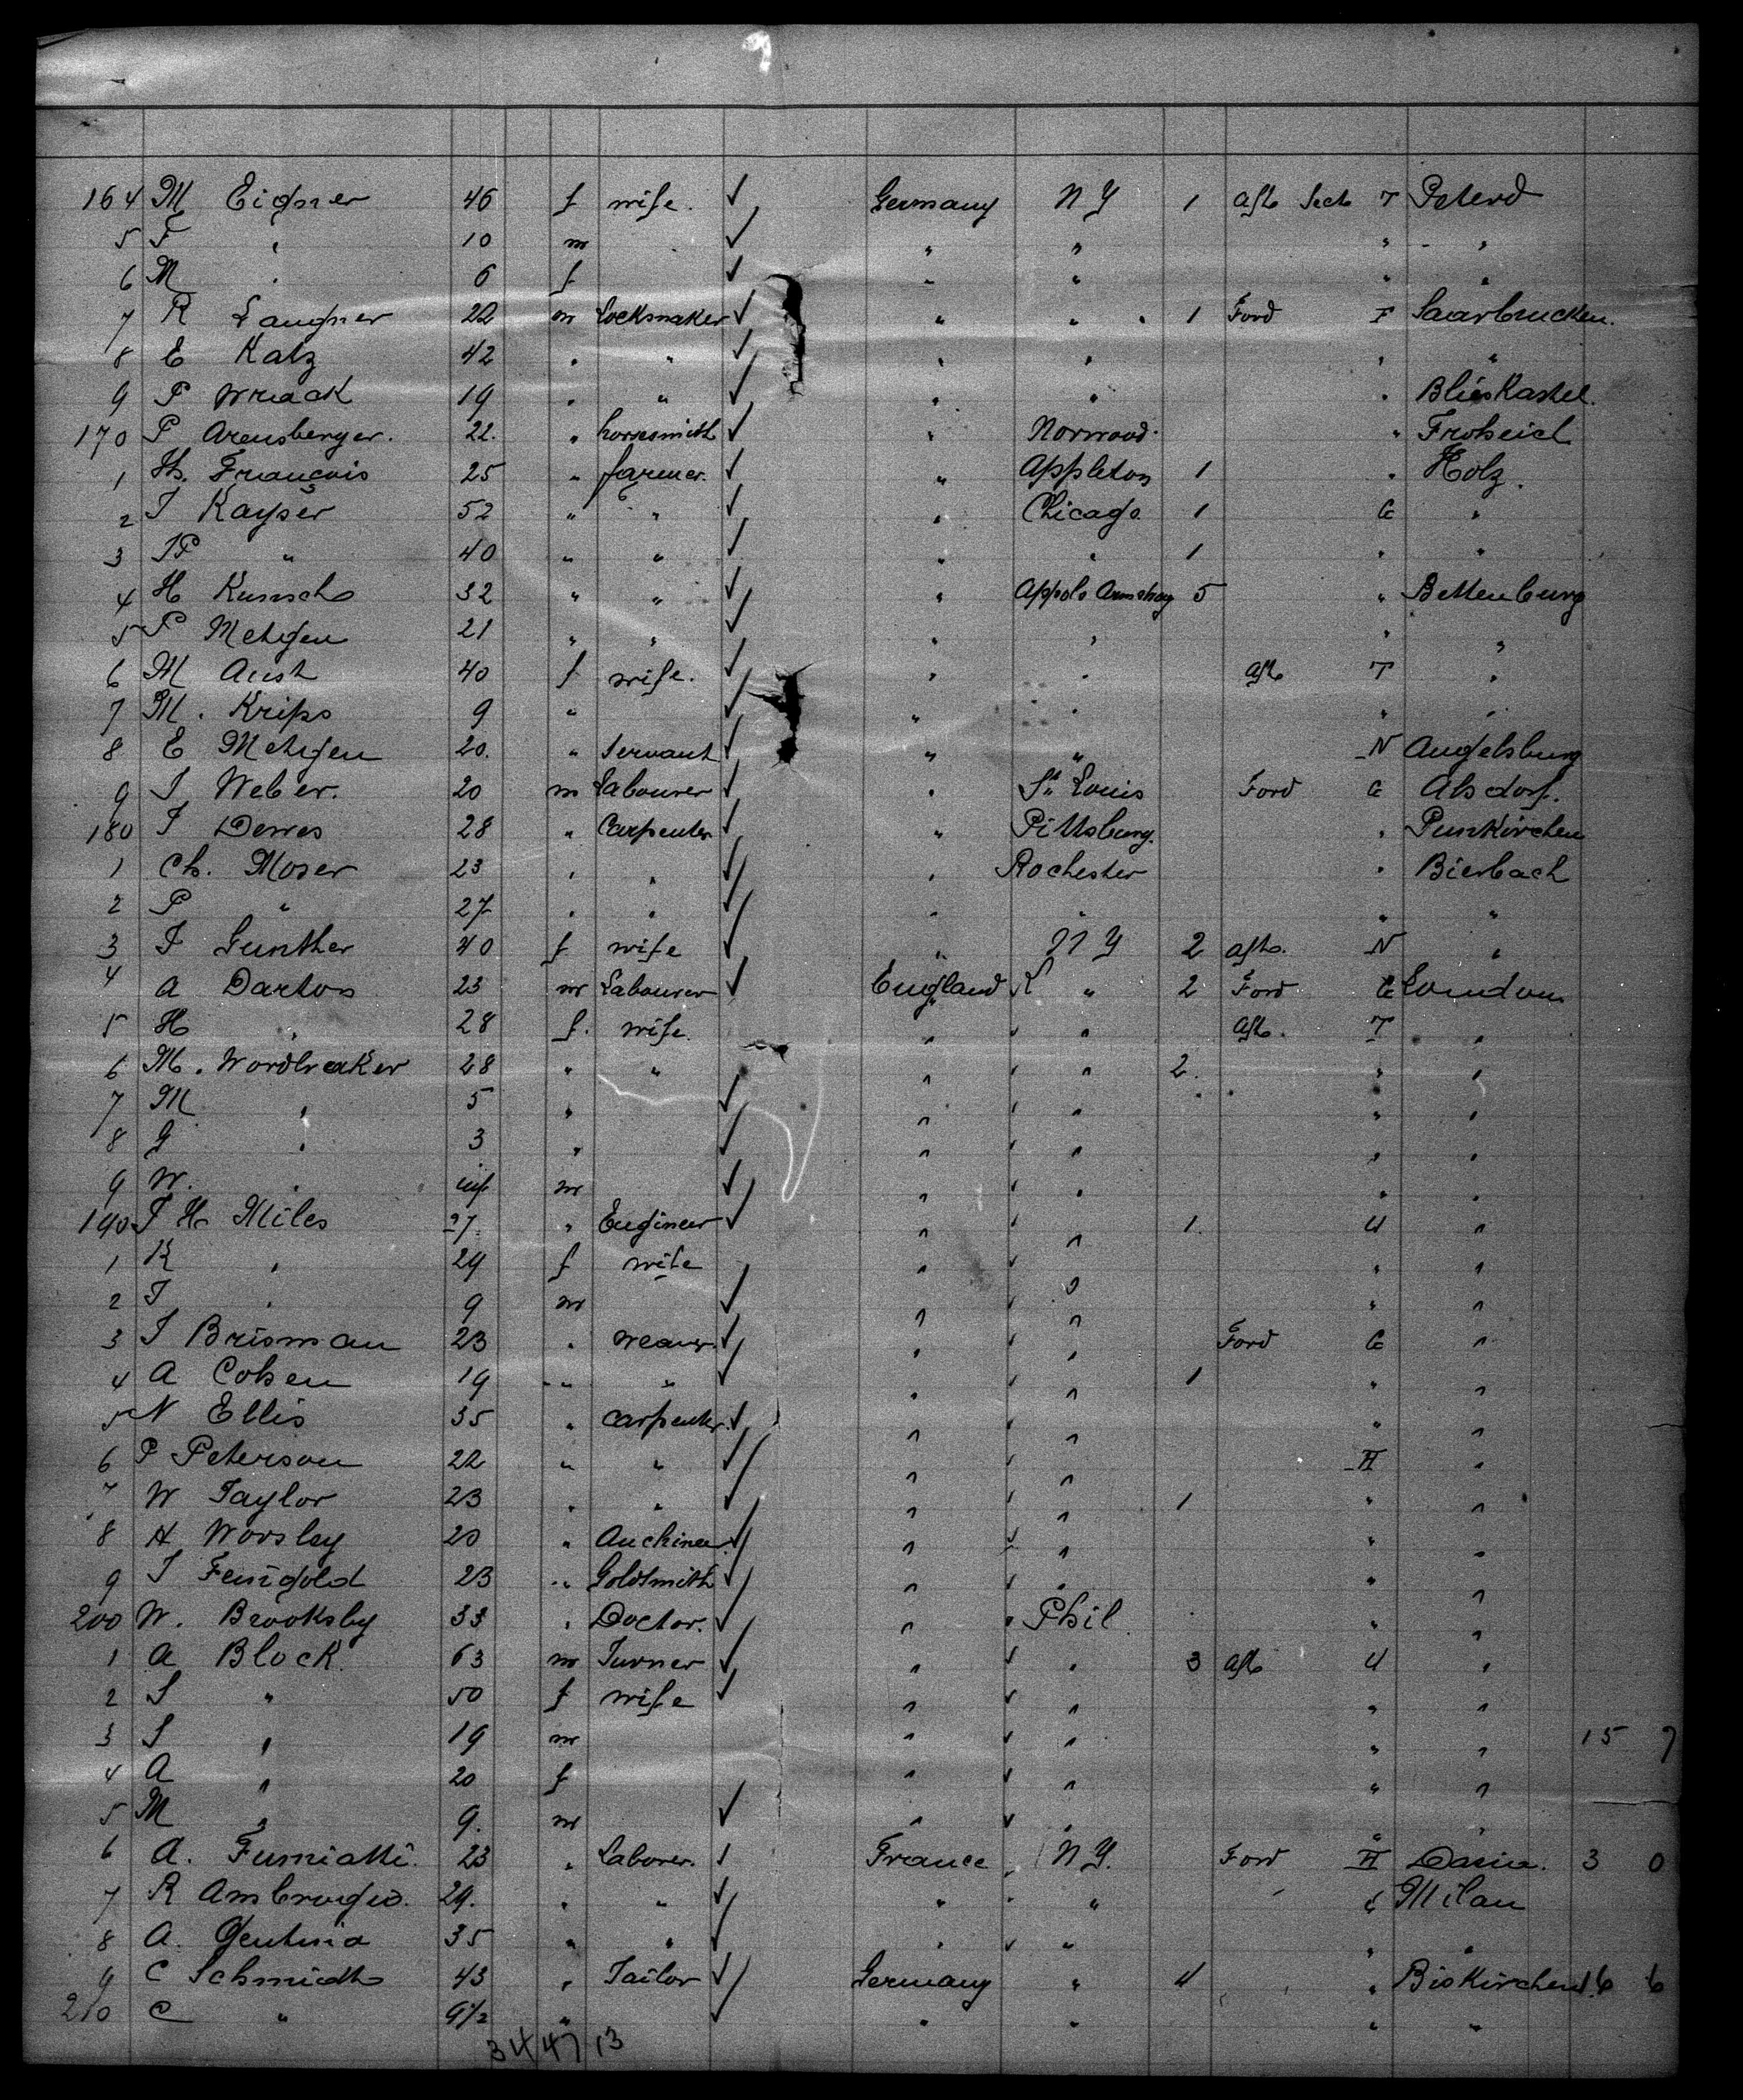 9
164 M Eigner 46 f wife. ✓ Germany N Y 1 Aft Sect T Peterd
5 F " 10 m ✓ " " " "
6 M " 6 f ✓ " " " "
7 R Laugner 22 m Locksmaker ✓ " " 1 Ford F Saarbrucken.
8 E Katz 42 " " ✓ " " " "
9 P Wrack 19 " " ✓ " " " Blieskastel.
170 P Arensberger. 22. " horsesmith ✓ " Norwood " Froheich
1 Th. François 25 " farmer. ✓ " Appleton 1 " Holz.
2 J Kayser 52 " " ✓ " Chicago 1 G "
3 J P " 40 " " ✓ " " 1 " "
4 H Kunsch 32 " " ✓ " Appolo Armstrong 5 " Bettenburg
5 P Metzgen 21 " " ✓ " " " "
6 M Aust 40 f wife. ✓ " " Aft T "
7 M. Krips 9 " ✓ " " " "
8 E Metzgen 20. " Servant ✓ " " N Angelsburg
9 J Weber. 20 m Labourer ✓ " St Louis Ford G Alsdorf.
180 J Dewes 28 " Carpenter ✓ " Pittsburg. " Punkirchen
1 Ch. Moser 23 " " ✓ " Rochester " Bierbach
2 P " 27 " " ✓ " " " "
3 F Gunther 40 f wife ✓ " N Y 2 aft. N "
4 A Darton 23 m Labourer ✓ England ✓ " 2 Ford G London
5 H " 28 f. wife. " ✓ " Aft. T "
6 M. Wordbreaker 28 " " " ✓ " 2. " "
7 M " 5 " ✓ " ✓ " " "
8 G " 3 " ✓ " ✓ " " "
9 W. " inf m ✓ " ✓ " " "
190 J H Miles 27 " Engineer ✓ " ✓ " 1. U "
1 K " 24 f wife " ✓ " " "
2 J " 9 m ✓ " ✓ " " "
3 J Brisman 23 " weaver. ✓ " ✓ " Ford G "
4 A Cohen 19 " " ✓ " ✓ " 1 " "
5 N Ellis 35 " carpenter. ✓ " ✓ " " "
6 P Peterson 22 " " ✓ " ✓ " H "
7 W Taylor 23 " " ✓ " ✓ " 1 " "
8 H Worsley 20 " ✓ " ✓ " " "
9 J Feingold 23 " Goldsmith ✓ " ✓ " " "
200 W. Brooksby 33 " Doctor. ✓ " " Phil. " "
1 A Block. 63 m Turner ✓ " ✓ " 3 Aft U "
2 S " 50 f wife ✓ " ✓ " " "
3 S " 19 m " ✓ " " " 15 7
4 A " 20 f " ✓ " " "
5 M " 9. m ✓ " ✓ " " "
6 A. Fumiatti. 23 " Laborer. ✓ France " N Y. Ford H 3 0
7 R Ambrogio. 29. " " ✓ " " " " Milan
8 A. Gentina 35 " " ✓ " ✓ " " "
9 C Schmidt 43 " Tailor ✓ Germany " 4 " Biskirchen 16 6
210 C " 9½ " ✓ " " " "
34 47 13